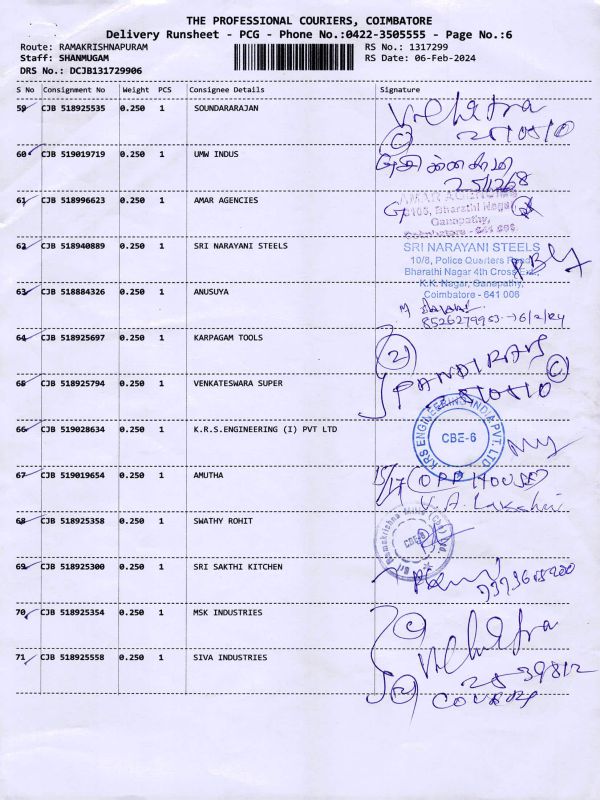 THE PROFESSIONAL COURIERS, COIMBATORE
Delivery Runsheet - PCG - Phone No.:0422-3505555 - Page No.:6
Route: RAMAKRISHNAPURAM RS No.: 1317299
Staff: SHANMUGAM RS Date: 06-Feb-2024
DRS No.: DCJB131729906
S No Consignment No Weight PCS Consignee Details Signature
59 CJB 518925535 0.250 1 SOUNDARARAJAN
60 CJB 519019719 0.250 1 UMW INDUS
61 CJB 518996623 0.250 1 AMAR AGENCIES
AMAR AGENCIES
Bharathi Nagar
Ganapathy,
Coimbatore - 641 006.
62 CJB 518940889 0.250 1 SRI NARAYANI STEELS
SRI NARAYANI STEELS
10/8, Police Quarters Road
Bharathi Nagar 4th Cross Ext.,
K.K. Nagar, Ganapathy,
Coimbatore - 641 006
63 CJB 518884326 0.250 1 ANUSUYA
8526279953 → 6/2/24
64 CJB 518925697 0.250 1 KARPAGAM TOOLS
21
65 CJB 518925794 0.250 1 VENKATESWARA SUPER
66 CJB 519028634 0.250 1 K.R.S.ENGINEERING (I) PVT LTD
KRS ENGINEERING INDIA PVT. LTD
CBE-6
67 CJB 519019654 0.250 1 AMUTHA
OPP HOUSE
V.A. Lakshmi
68 CJB 518925358 0.250 1 SWATHY ROHIT
Sri Ramakrishna
69 CJB 518925300 0.250 1 SRI SAKTHI KITCHEN
70 CJB 518925354 0.250 1 MSK INDUSTRIES
71 CJB 518925558 0.250 1 SIVA INDUSTRIES